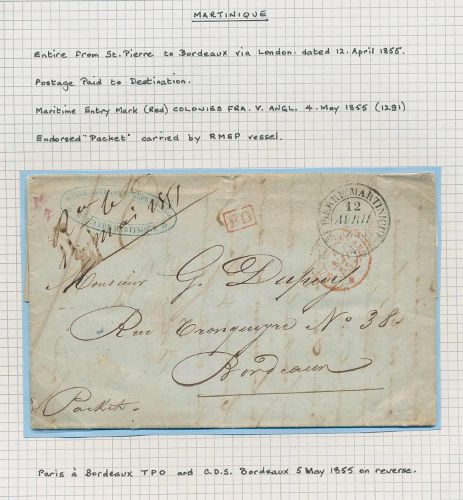 MARTINIQUE
Entire from St. Pierre to Bordeaux via London. dated 12. April 1855.
Postage Paid to Destination.
Maritime Entry Mark (Red) COLONIES FRA. V. ANGL. 4. May 1855 (1291)
Endorsed "Packet" carried by RMSP vessel.
ST PIERRE MARTINIQUE
12
AVRIL
P.D.
Monsieur G. Dupuy
Rue Tronqueyre No 38
Bordeaux
Packet.
Paris à Bordeaux TPO and C.D.S. Bordeaux 5 May 1855 on reverse.